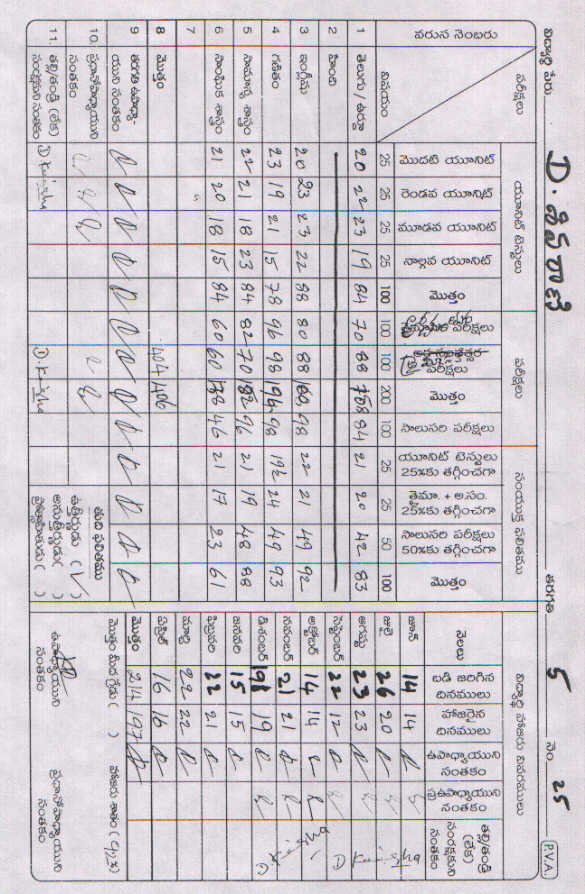 విద్యార్థి పేరు D. శివరాణి తరగతి 5 నెం. 25 P.V.A.
వరుస నెంబరు
పరీక్షలు
విషయం
యూనిట్ టెస్టులు
పరీక్షలు
సంయుక్త ఫలితము
మొదటి యూనిట్
రెండవ యూనిట్
మూడవ యూనిట్
నాల్గవ యూనిట్
మొత్తం
పరీక్షలు
పరీక్షలు
మొత్తం
సాలుసరి పరీక్షలు
యూనిట్ టెస్టులు 25%కు తగ్గించగా
త్రైమా. + అ.సం. 25%కు తగ్గించగా
సాలుసరి పరీక్షలు 50%కు తగ్గించగా
మొత్తం
25 25 25 25 100 100 100 200 100 25 25 50 100
1 తెలుగు / ఉర్దూ 20 22 23 19 84 70 88 84 21 20 42 83
2 హింది
3 ఇంగ్లీషు 20 23 23 22 88 80 88 98 22 21 49 92
4 గణితం 23 19 21 15 78 96 98 194 98 19½ 24 49 93
5 సామాన్య శాస్త్రం 22 21 18 23 84 82 70 96 21 19 48 88
6 సాంఘిక శాస్త్రం 21 20 18 15 84 60 60 46 21 17 23 61
7
8 మొత్తం 404 406
9 తరగతి ఉపాధ్యాయుని సంతకం
10. ప్రధానోపాధ్యాయుని సంతకం
11. తల్లి/తండ్రి (లేక) సంరక్షకుని సంతకం
తుది ఫలితము
ఉత్తీర్ణుడు (√)
అనుత్తీర్ణుడు( )
ప్రోత్సాహితుడు( )
విద్యార్థి హాజరు వివరములు
నెలలు
బడి జరిగిన దినములు
హాజరైన దినములు
ఉపాధ్యాయుని సంతకం
ప్రఉపాధ్యాయుని సంతకం
తల్లి/తండ్రి (లేక) సంరక్షకుని సంతకం
జూన్ 14 14
జులై 26 20
ఆగష్టు 23 23
సెప్టెంబర్ 22 12
అక్టోబర్ 14 14
నవంబర్ 21 21
డిశంబర్ 19
జనవరి 15 15
ఫిబ్రవరి 22 21
మార్చి 22 22
ఏప్రిల్ 16 16
మొత్తం 214 197
మొత్తం మీద గ్రేడు ( ) హాజరు శాతం (92%)
ఉపాధ్యాయుని సంతకం
ప్రధానోపాధ్యాయుని సంతకం